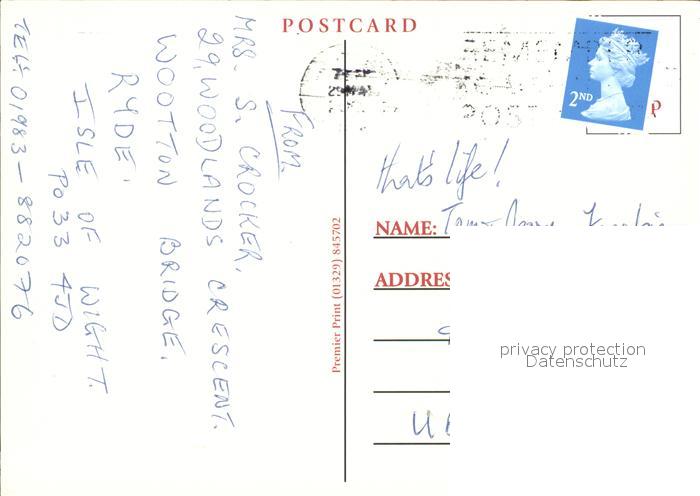 POSTCARD
FROM.
MRS. S. CROCKER,
29, WOODLANDS CRESCENT.
WOOTTON BRIDGE.
RYDE.
ISLE OF WIGHT.
PO33 4JD
TEL: 01983-882076
Premier Print (01329) 845702
2ND
POST
that's life!
NAME:
ADDRES
privacy protection
Datenschutz